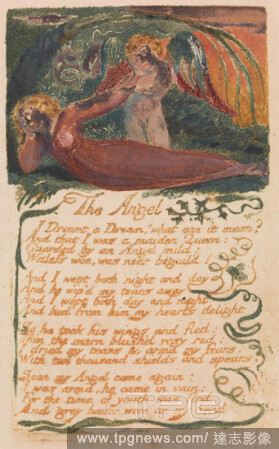 The Angel
I Dreamt a Dream! what can it mean?
And that I was a maiden Queen:
Guarded by an Angel mild:
Witless woe, was neer beguil'd!
And I wept both night and day
And he wip'd my tears away
And I wept both day and night
And hid from him my hearts delight
So he took his wings and fled:
Then the morn blush'd rosy red:
I dried my tears & armd my fears,
With ten thousand shields and spears.
Soon my Angel came again:
I was arm'd, he came in vain:
For the time of youth was fled
And grey hairs were on my head
TPG
www.tpgnews.com / 達志影像